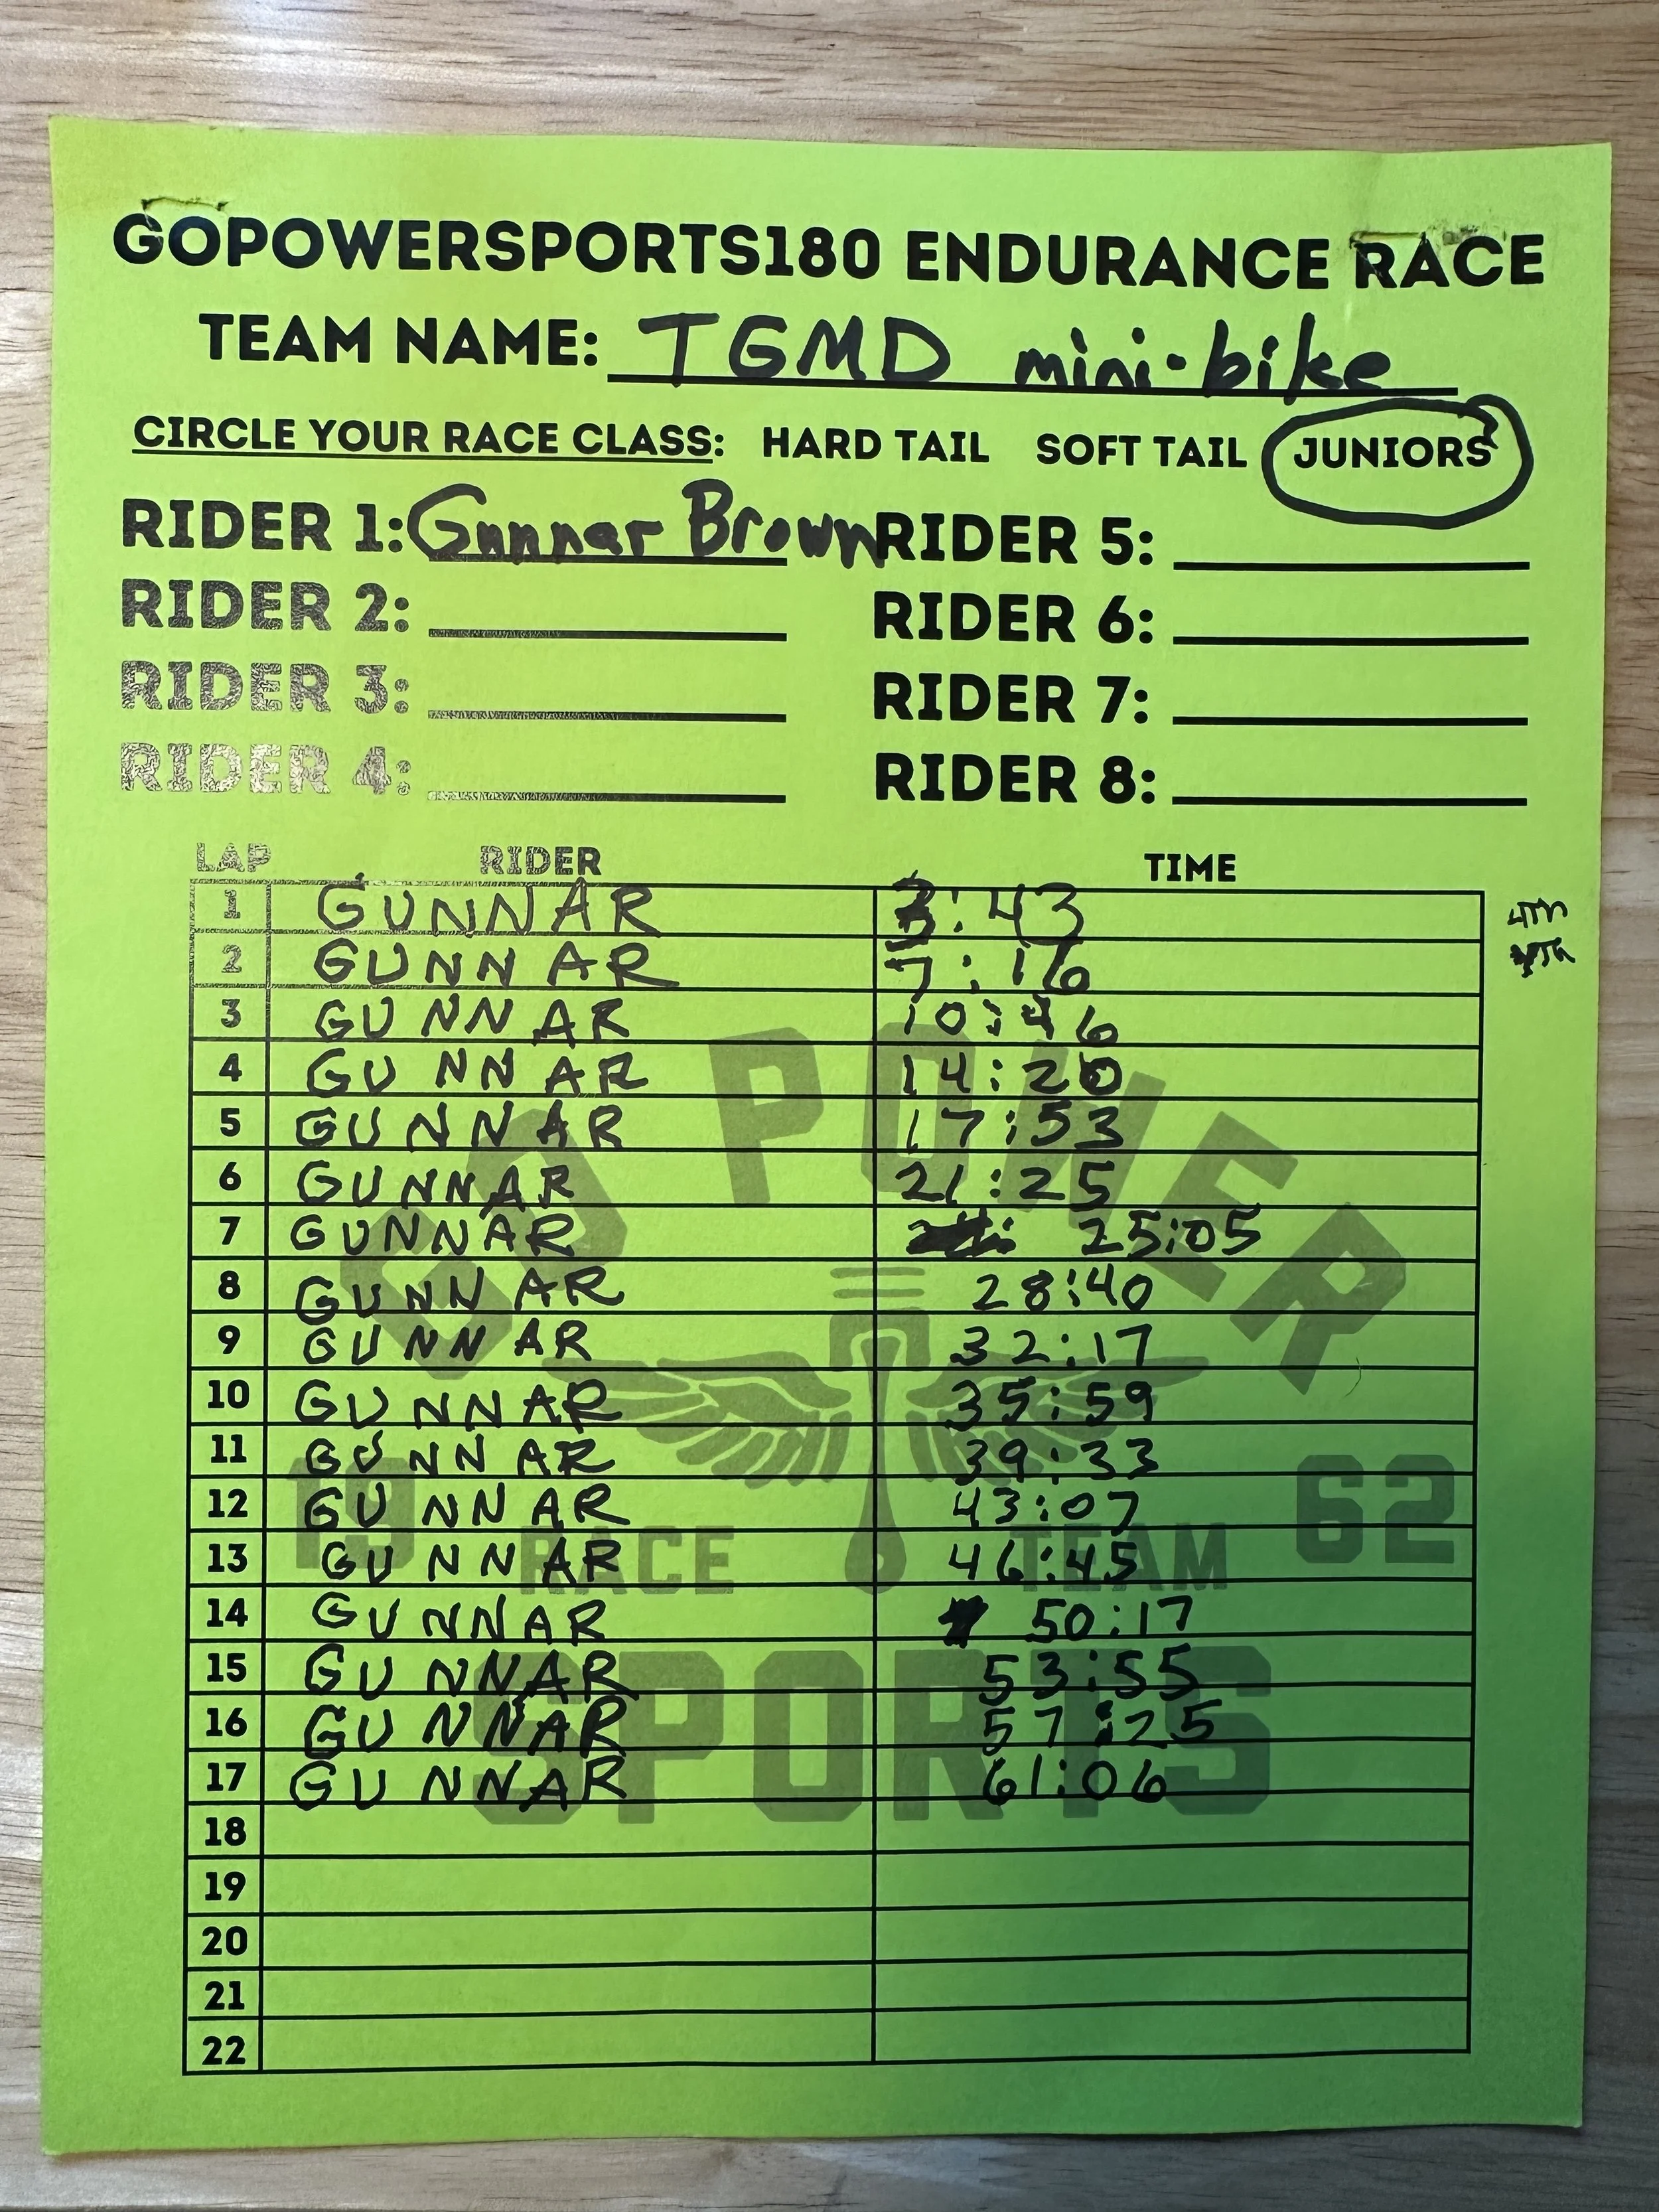 GOPOWERSPORTS180 ENDURANCE RACE
TEAM NAME: TGMD mini-bike
CIRCLE YOUR RACE CLASS: HARD TAIL SOFT TAIL JUNIORS
RIDER 1: Gunnar Brown RIDER 5:
RIDER 2: RIDER 6:
RIDER 3: RIDER 7:
RIDER 4: RIDER 8:
LAP RIDER TIME
1 GUNNAR 3:43
2 GUNNAR 7:16
3 GUNNAR 10:46
4 GUNNAR 14:20
5 GUNNAR 17:53
6 GUNNAR 21:25
7 GUNNAR 25:05
8 GUNNAR 28:40
9 GUNNAR 32:17
10 GUNNAR 35:59
11 GUNNAR 39:33
12 GUNNAR 43:07
13 GUNNAR 46:45
14 GUNNAR 50:17
15 GUNNAR 53:55
16 GUNNAR 57:25
17 GUNNAR 61:06
18
19
20
21
22
GO POWER
19 62
RACE TEAM
SPORTS